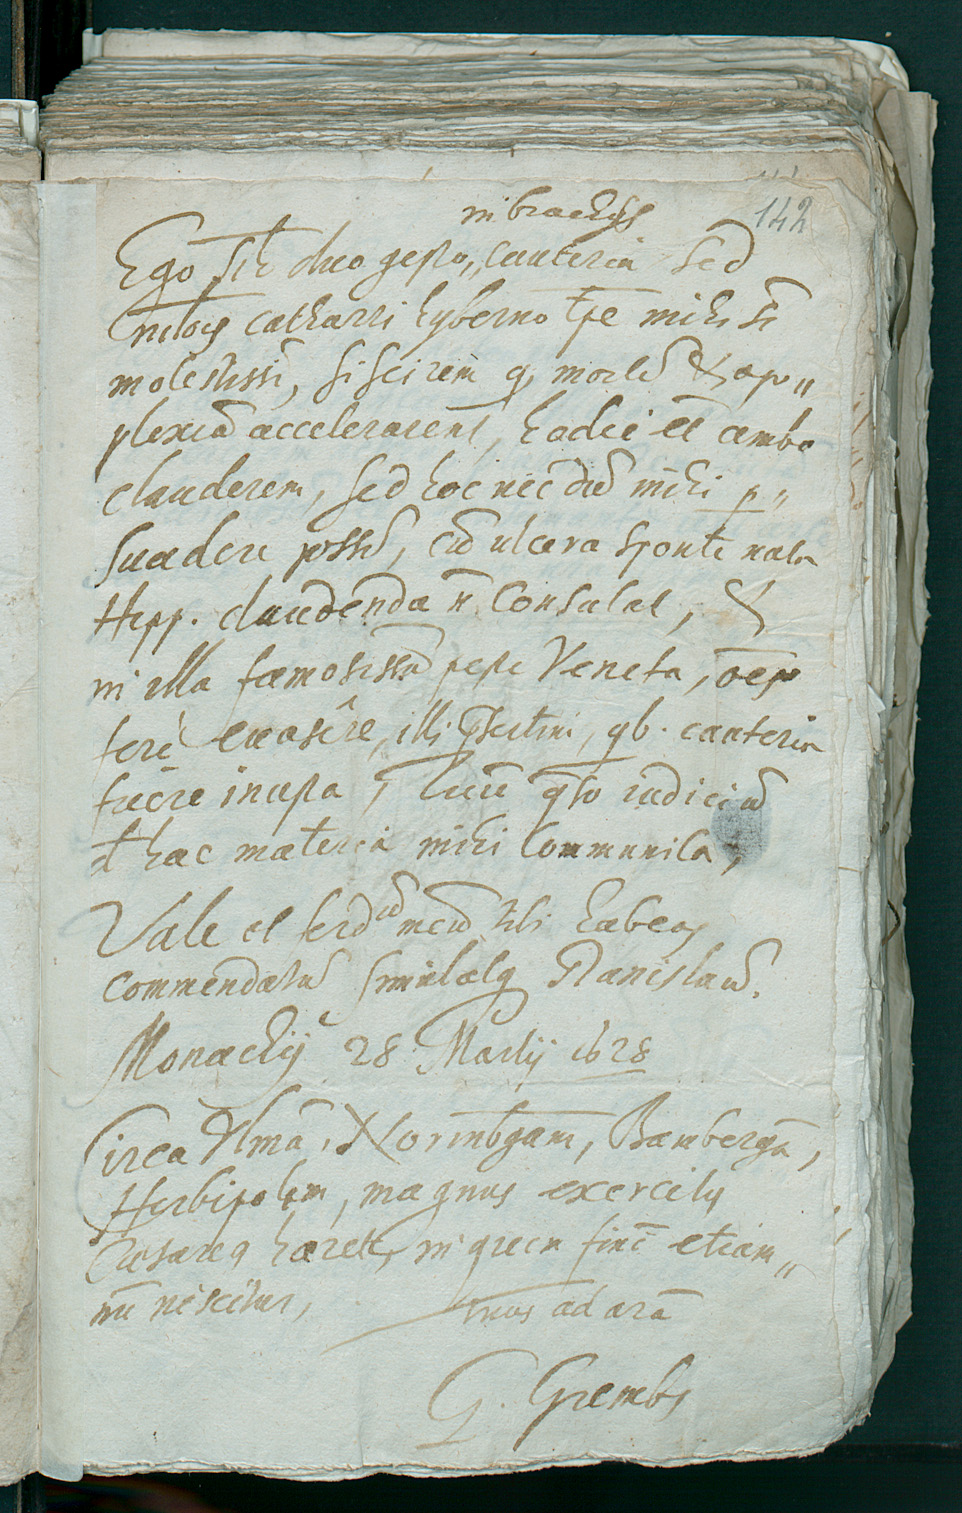 142
in brachijs
Ego duo gesto,, cauteria sed
catharri hyberno tpe mihi st
molestissi, si scirem q morbũ & apo,,
plexiã accelerarent, hodie et ambo
clauderem, sed hoc nec dũ mihi p,,
suadere possũ, cũ ulcera sponte nata
Hipp. claudenda ñ consulat, &
in illa famosissã peste Veneta, oẽs
ferè evasêre, illi qb. cauteria
fuere inusta, Tuũ qso iudiciũ
d hac materia mihi communica,
Vale et ferdcũ meũ tibi habeas
commendatũ simulatq Stanislaũ.
Monachij 28 Martij 1628
Circa Ulmã, Norinbgam, Bambergã,
Herbipolim, magnus exercitus
Cæsareq hæret, in quem finẽ etiam,,
nũ nescitur,
tuus ad arã
G. Grembs